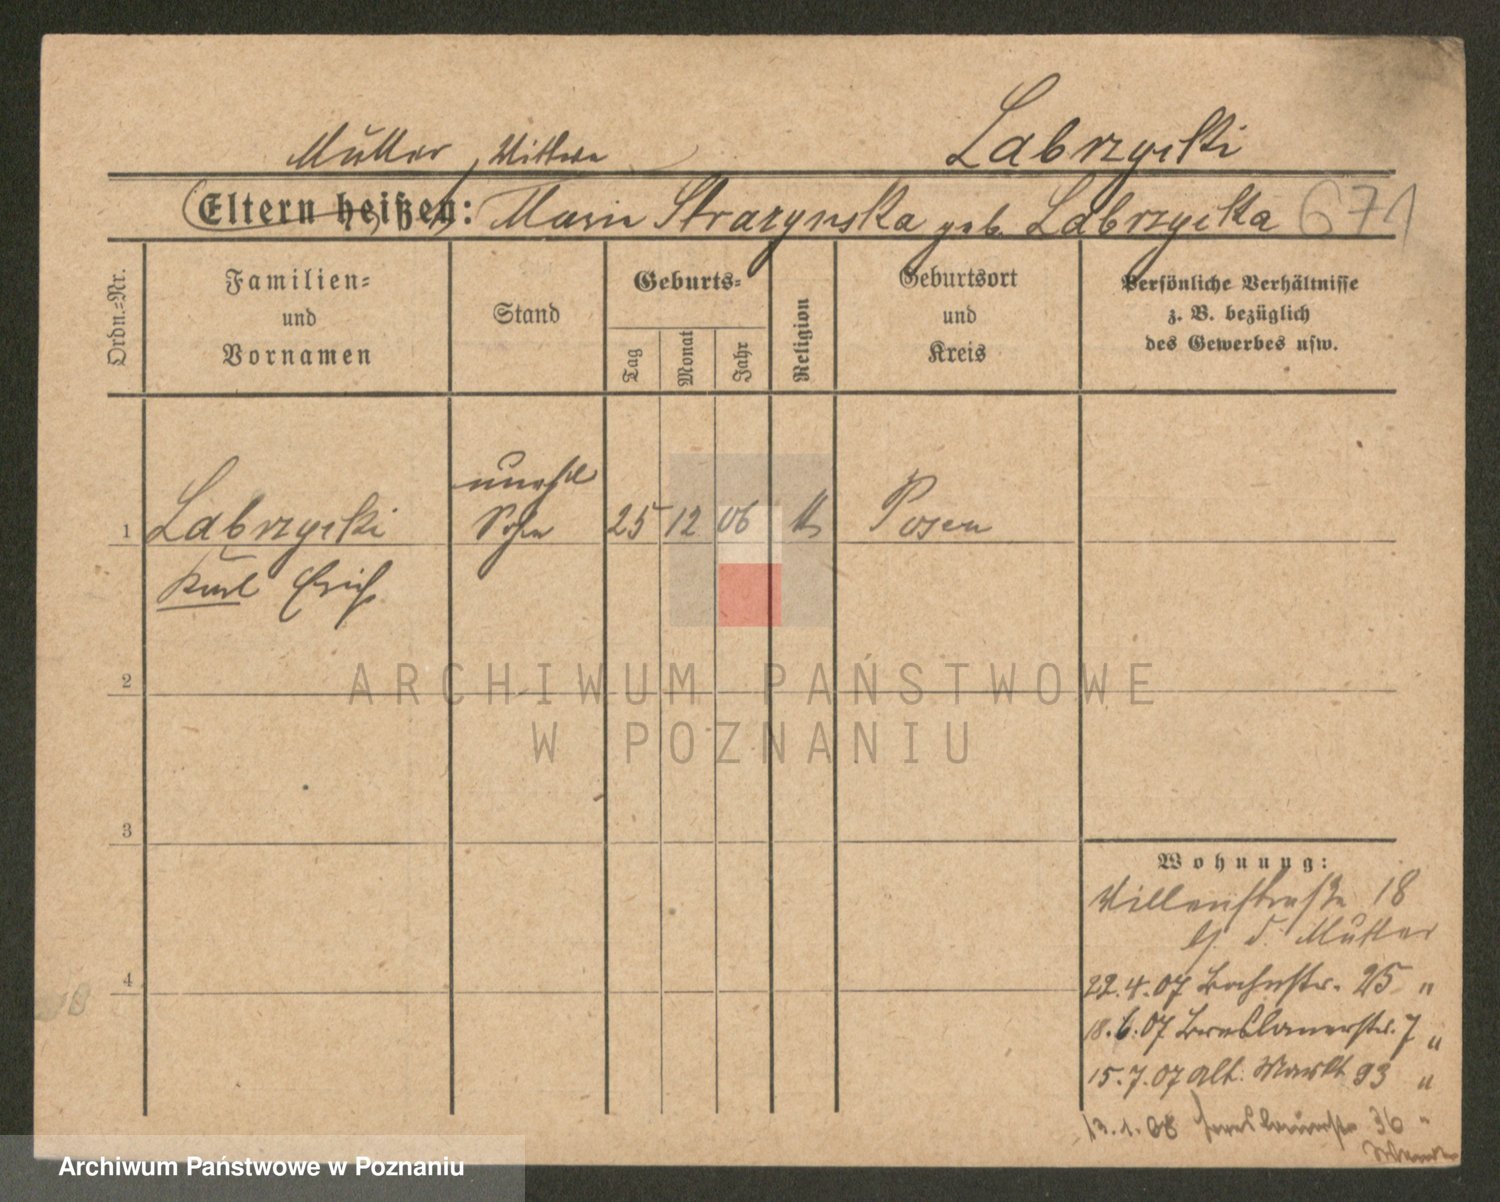 Labrzycki
Mutter, Witwe
Eltern heißen: Marie Strazynska geb. Labrzycka 671
Ordn.-Nr.
Familien-
und
Vornamen
Stand
Geburts-
Tag
Monat
Jahr
Religion
Geburtsort
und
Kreis
Persönliche Verhältnisse
z. B. bezüglich
des Gewerbes usw.
unehl
1 Labrzycki Sohn 25 12 06 k Posen
Karl Erich
2
3
4
Wohnung:
Villenstraße 18
b. d. Mutter
22.4.07 Bahnstr. 25 "
18.6.07 Breslauerstr. 7 "
15.7.07 Alt. Markt 93 "
13.1.08 Breslauerstr 36 "
ARCHIWUM PAŃSTWOWE
W POZNANIU
Archiwum Państwowe w Poznaniu